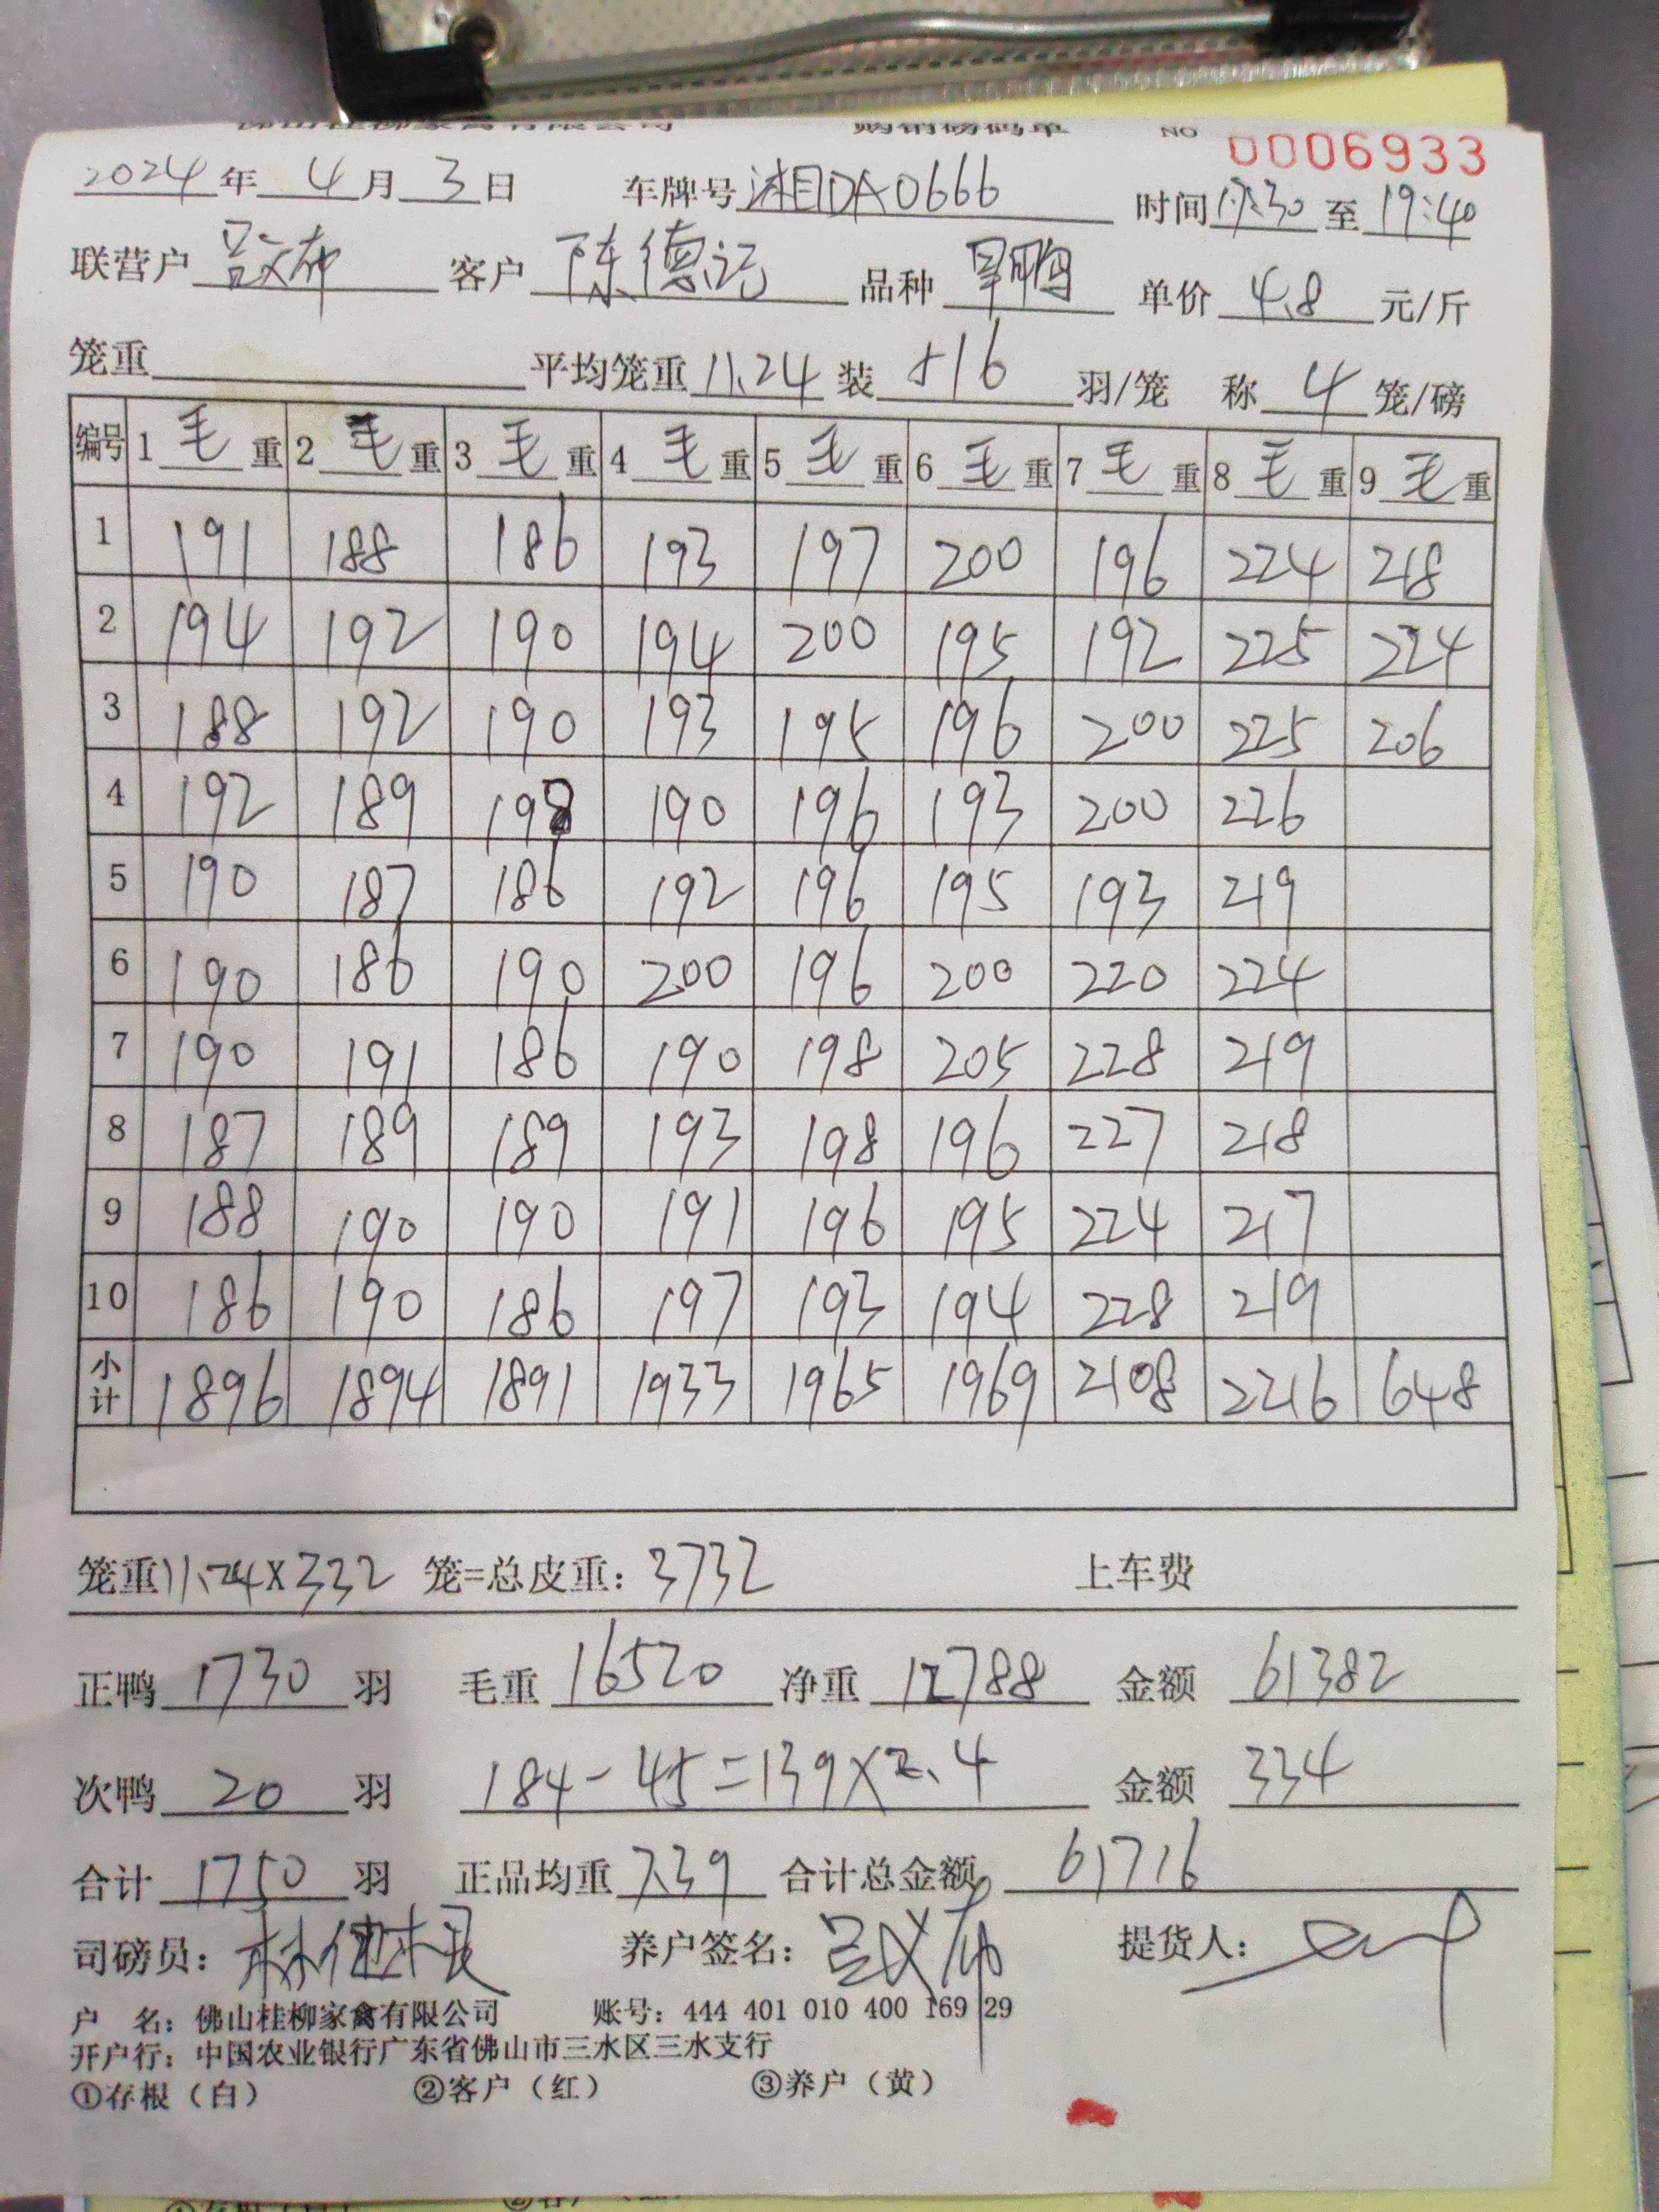 NO 0006933
2024年 4月 3日 车牌号 湘DA0666 时间 17:30 至 19:40
联营户 客户 陈德记 品种 旱鸭 单价 4.8 元/斤
笼重 平均笼重 11.24 装 516 羽/笼 称 4 笼/磅
编号 1 毛 重 2 毛 重 3 毛 重 4 毛 重 5 毛 重 6 毛 重 7 毛 重 8 毛 重 9 毛 重
1 191 188 186 193 197 200 196 224 218
2 194 192 190 194 200 195 192 225 224
3 188 192 190 193 195 196 200 225 206
4 192 189 198 190 196 193 200 226
5 190 187 186 192 196 195 193 219
6 190 186 190 200 196 200 220 224
7 190 191 186 190 198 205 228 219
8 187 189 189 193 198 196 227 218
9 188 190 190 191 196 195 224 217
10 186 190 186 197 193 194 228 219
小计 1896 1894 1891 1933 1965 1969 2108 2216 648
笼重 11.24×332 笼=总皮重: 3732 上车费
正鸭 1730 羽 毛重 16520 净重 12788 金额 61382
次鸭 20 羽 184-45=139×2.4 金额 334
合计 1750 羽 正品均重 7.39 合计总金额 61716
司磅员: 养户签名: 提货人:
户 名: 佛山桂柳家禽有限公司 账号: 444 401 010 400 169 29
开户行: 中国农业银行广东省佛山市三水区三水支行
①存根（白） ②客户（红） ③养户（黄）